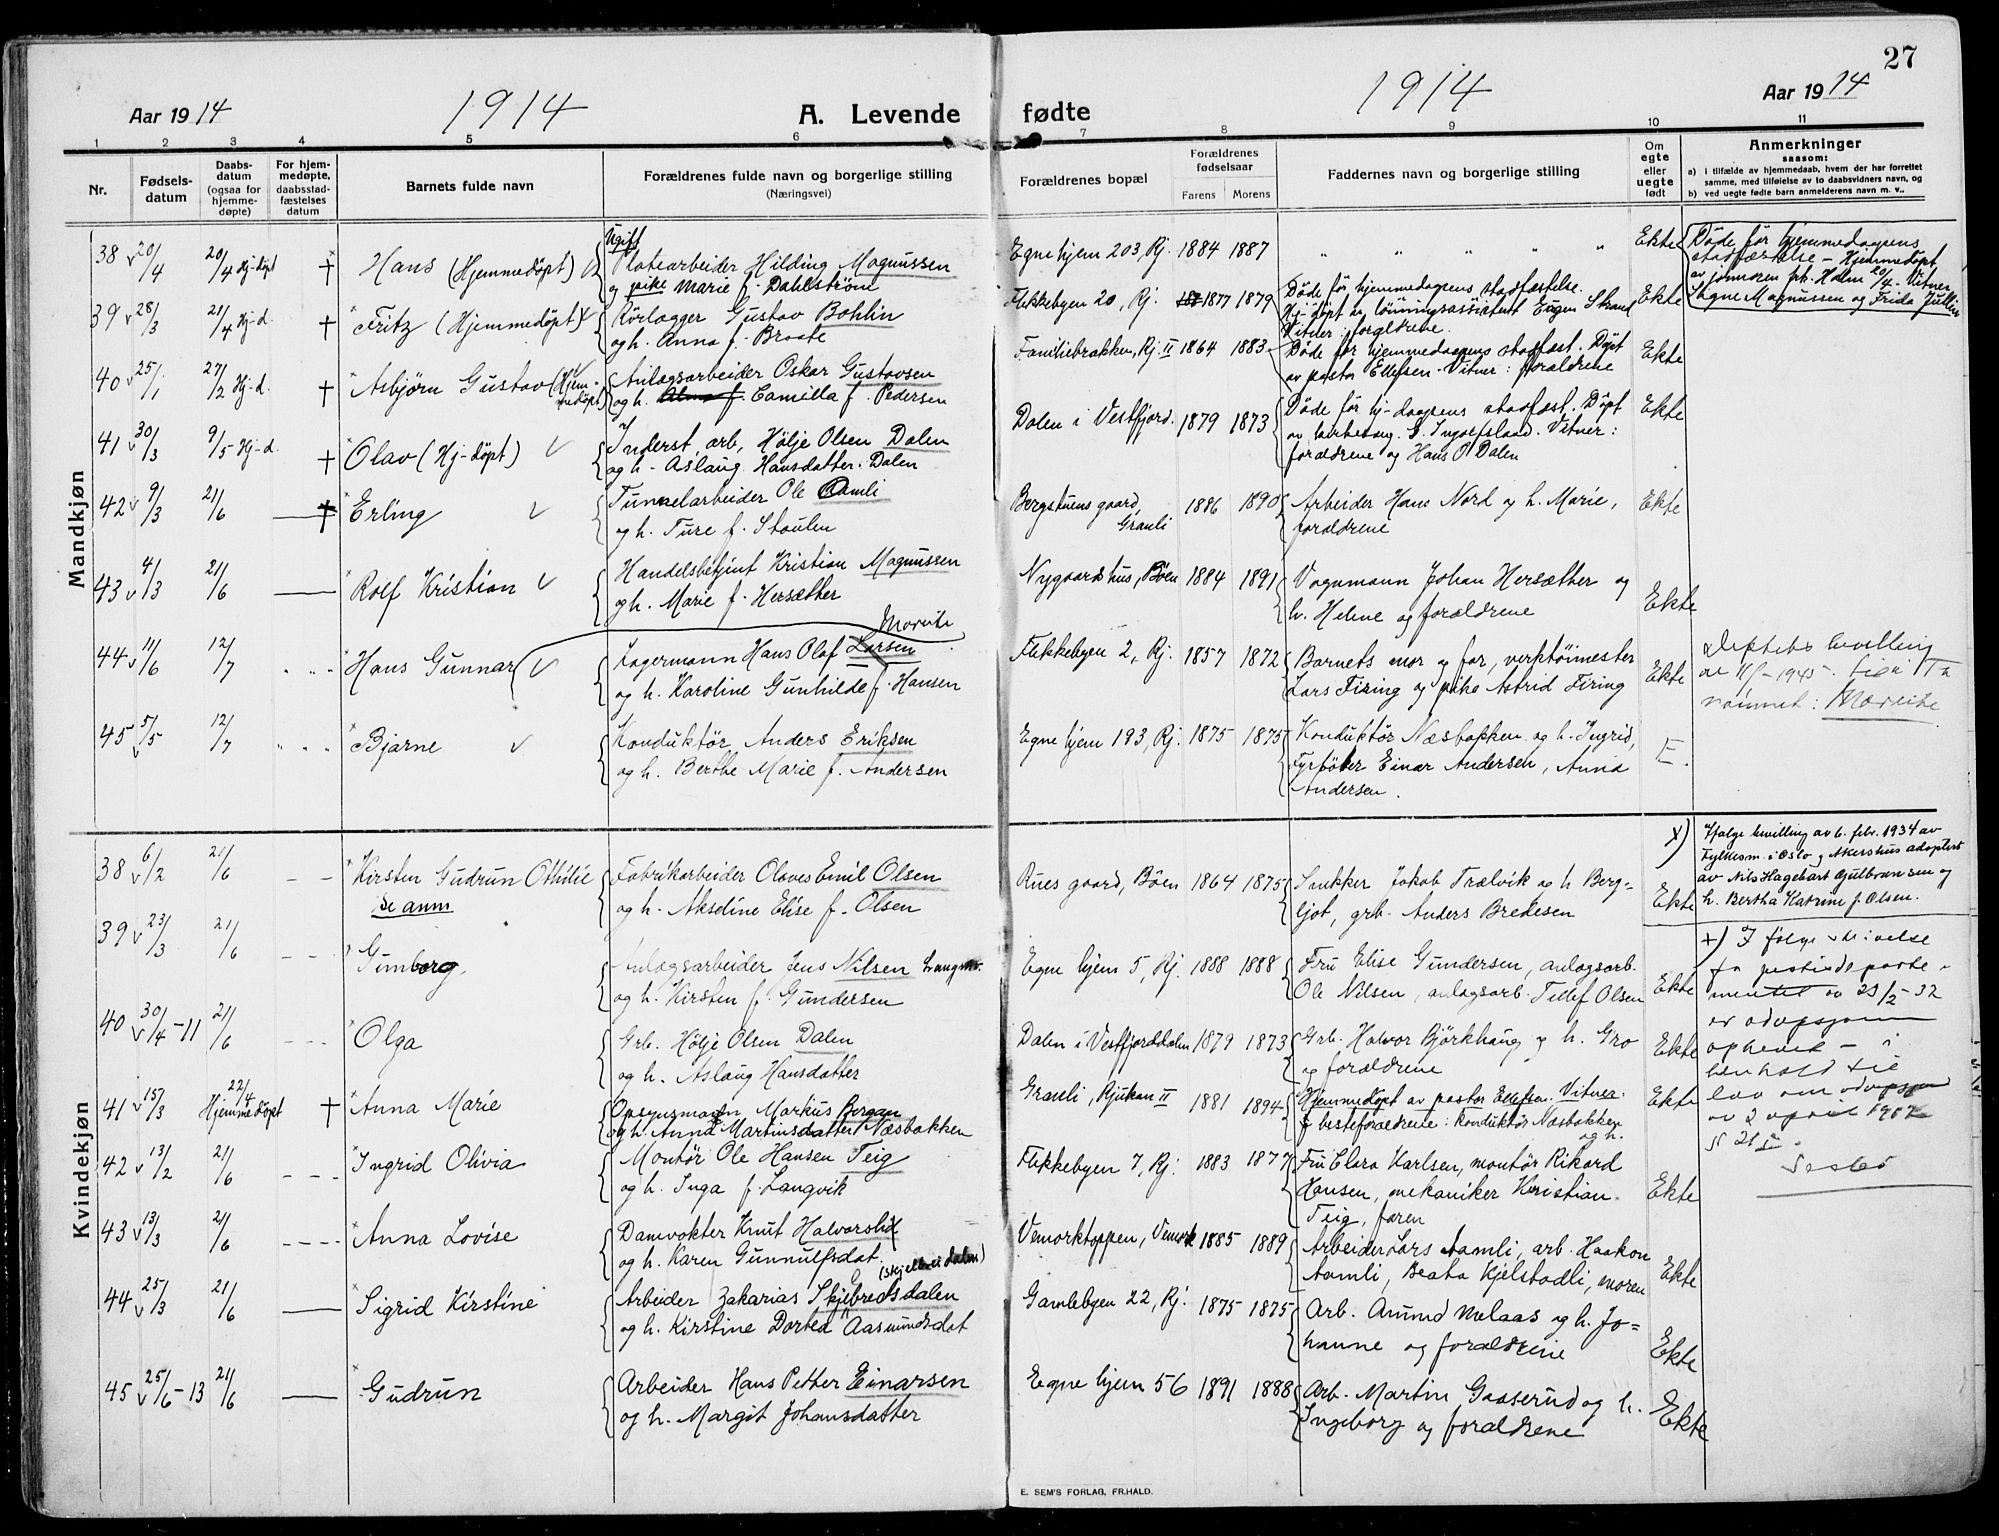 27
Aar 1914
1914
A. Levende
fødte
1914
Aar 1914
1 2 3 4 5 6 7 8 9 10 11
Nr.
Fødselsdatum
Daabsdatum (ogsaa for hjemmedøpte)
For hjemmedøpte, daabsstadfæstelses datum
Barnets fulde navn
Forældrenes fulde navn og borgerlige stilling
(Næringsvei)
Forældrenes bopæl
Forældrenes fødselsaar
Farens Morens
Faddernes navn og borgerlige stilling
Om egte eller uegte født
Anmerkninger
saasom:
a) i tilfælde av hjemmedaab, hvem der har forrettet samme, med tilføielse av to daabsvidners navn, og
b) ved uegte fødte barn anmelderens navn m. v..
Mandkjøn
38 20/4 20/4 Hj-døpt † Hans (Hjemmedöpt)
Ugift
Platearbeider Hilding Magnussen
og pike Marie f. Dahlström
Egne hjem 203, Rj. 1884 1887 " " " " Ekte
Døde før hjemmedaapens
stadfæstelse - Hjemmedöpt
av jormoren frk. Holm 20/4. Vitner
Signe Magnussen og Frida
39 28/3 21/4 Hj-d. † Fritz (Hjemmedöpt)
Rörlægger Gustav Bohlin
og h. Anna f. Braate
Flekkebyen 20, Rj. 1877 1879
Døde før hjemmedaapens stadfæstelse.
Hj-döpt av lönningsassistent Eugen Strand
Vitner: forældrene.
Ekte
40 25/1 27/2 Hj-d. † Asbjörn Gustav (Hjemmedöpt)
Anlægsarbeider Oskar Gustavsen
og h. Camilla f. Pedersen
Familiebrakken, Rj. II 1864 1883
Døde før hjemmedaapens stadfæst. Döpt
av pastor Ellefsen. Vitner: forældrene
Ekte
41 30/3 9/5 Hj-d. † Olav (Hj-döpt)
Inderst, arb, Hölje Olsen Dalen
og h. Aslaug Hansdatter. Dalen
Dalen i Vestfjord. 1879 1873
Døde før hj-daapens stadfæst. Döpt
av kirkesang. S. Ingolfsland. Vitner:
forældrene og Hans O Dalen
Ekte
42 9/3 21/6 † Erling
Tunnelarbeider Ole Aamli
og h. Ture f. Staulen
Bergstuens gaard,
Graeli
1886 1890
Arbeider Hans Nord og h. Marie,
forældrene
Ekte
43 4/3 21/6 Rolf Kristian
Handelsbetjent Kristian Magnussen
og h. Marie f. Hersætter
Nygaardshus, Böen 1884 1891
Vognmann Johan Hersætter og
h. Helene og forældrene
Ekte
44 11/6 12/7 Hans Gunnar
Morvite
Lagermann Hans Olaf Larsen
og h. Karoline Gunhilde f. Hansen
Flekkebyen 2, Rj. 1857 1872
Barnets mor og far, verktöimester
Lars Firing og pike Astrid Firing
Ekte
bevilling
1945
navnet:
45 5/5 12/7 Bjarne
Konduktör Anders Eriksen
og h. Berthe Marie f. Andersen
Egne hjem 193, Rj. 1875 1875
Konduktör Næsbakken og h. Ingrid,
Fyrböter Einar Andersen, Anna
Andersen.
E.
Kvindekjøn
38 6/2 21/6 Kirsten Gudrun Othilie
Se anm
Fabrikarbeider Olaves Emil Olsen
og h. Akseline Elise f. Olsen
Rues gaard, Böen 1864 1875
Snekker Jakob Trælvik og h Bergljot, grb. Anders Bredesen
Ekte
x) Ifølge bevilling av 6. febr. 1934 av
Fylkesm. i Oslo og Akershus adoptert
av Nils Hagebart Gulbransen og
h. Bertha Katrine f. Olsen.
39 23/3 21/6 Gunborg
Anlægsarbeider Jens Nilsen
og h. Kirsten f. Gundersen
Egne hjem 5, Rj. 1888 1888
Fru Elise Gundersen, anlagsarb.
Ole Nilsen, anlagsarb. Tellef Olsen
Ekte
+) I følge skrivelse
fra justisdepartementet av 23/2-32
er adopsjonen
ophevet - i
henhold til
lov om adopsjon
av 2 april 1917
§ 21
40 30/4-11 21/6 Olga
Grb. Hölje Olsen Dalen
og h. Aslaug Hansdatter
Dalen i Vestfjorddalen 1879 1873
Grb. Halvor Björkhaug og h. Gro
og forældrene
Ekte
41 15/3 22/4 Hjemmedöpt † Anna Marie
Opsynsmann Markus Bergan
og h. Anna Martinsdatter Næsbakken
Graeli, Rjukan II 1881 1894
Hjemmedöpt av pastor Ellefsen. Vitner:
besteforældrene: Konduktör Næsbakken
og h.
Ekte
42 13/2 21/6 Ingrid Olivia
Montör Ole Hansen Teig
og h. Inga f. Langvik
Flekkebyen 7, Rj. 1883 1877
Fru Clara Karlsen, montör Rikard
Hansen, mekaniker Kristian
Teig, faren
Ekte
43 13/3 21/6 Anna Lovise
Damvokter Knut Halvorslid
og h. Karen Gunnulfsdat.
Vemorktoppen, Vemork 1885 1889
Arbeider Lars Aamli, arb. Haakon
Aamli, Beata Kjelstadli, moren
Ekte
44 25/3 21/6 Sigrid Kirstine
Arbeider Zakarias Skjebredsdalen
og h. Kirstine Dortea Aasmundsdat
Gamlebyen 22, Rj. 1875 1875
Arb. Amund Melaas og h. Johanne og forældrene
Ekte
45 25/6-13 21/6 Gudrun
Arbeider Hans Petter Einarsen
og h. Margit Johansdatter
Egne hjem 56 1891 1888
Arb. Martin Gaaserud og h.
Ingeborg og forældrene
Ekte
E. SEM'S FORLAG, FR.HALD.